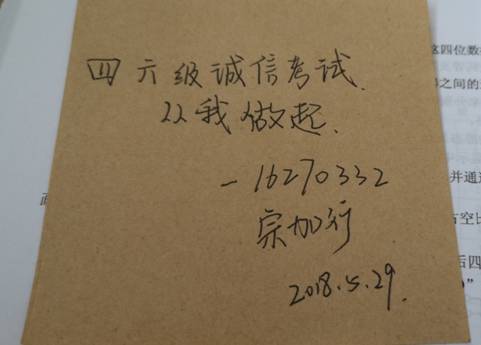 四六级诚信考试.
从我做起.
-16270332
宗加行
2018.5.29.
这四位数
之间的
并通过
占空比
后四